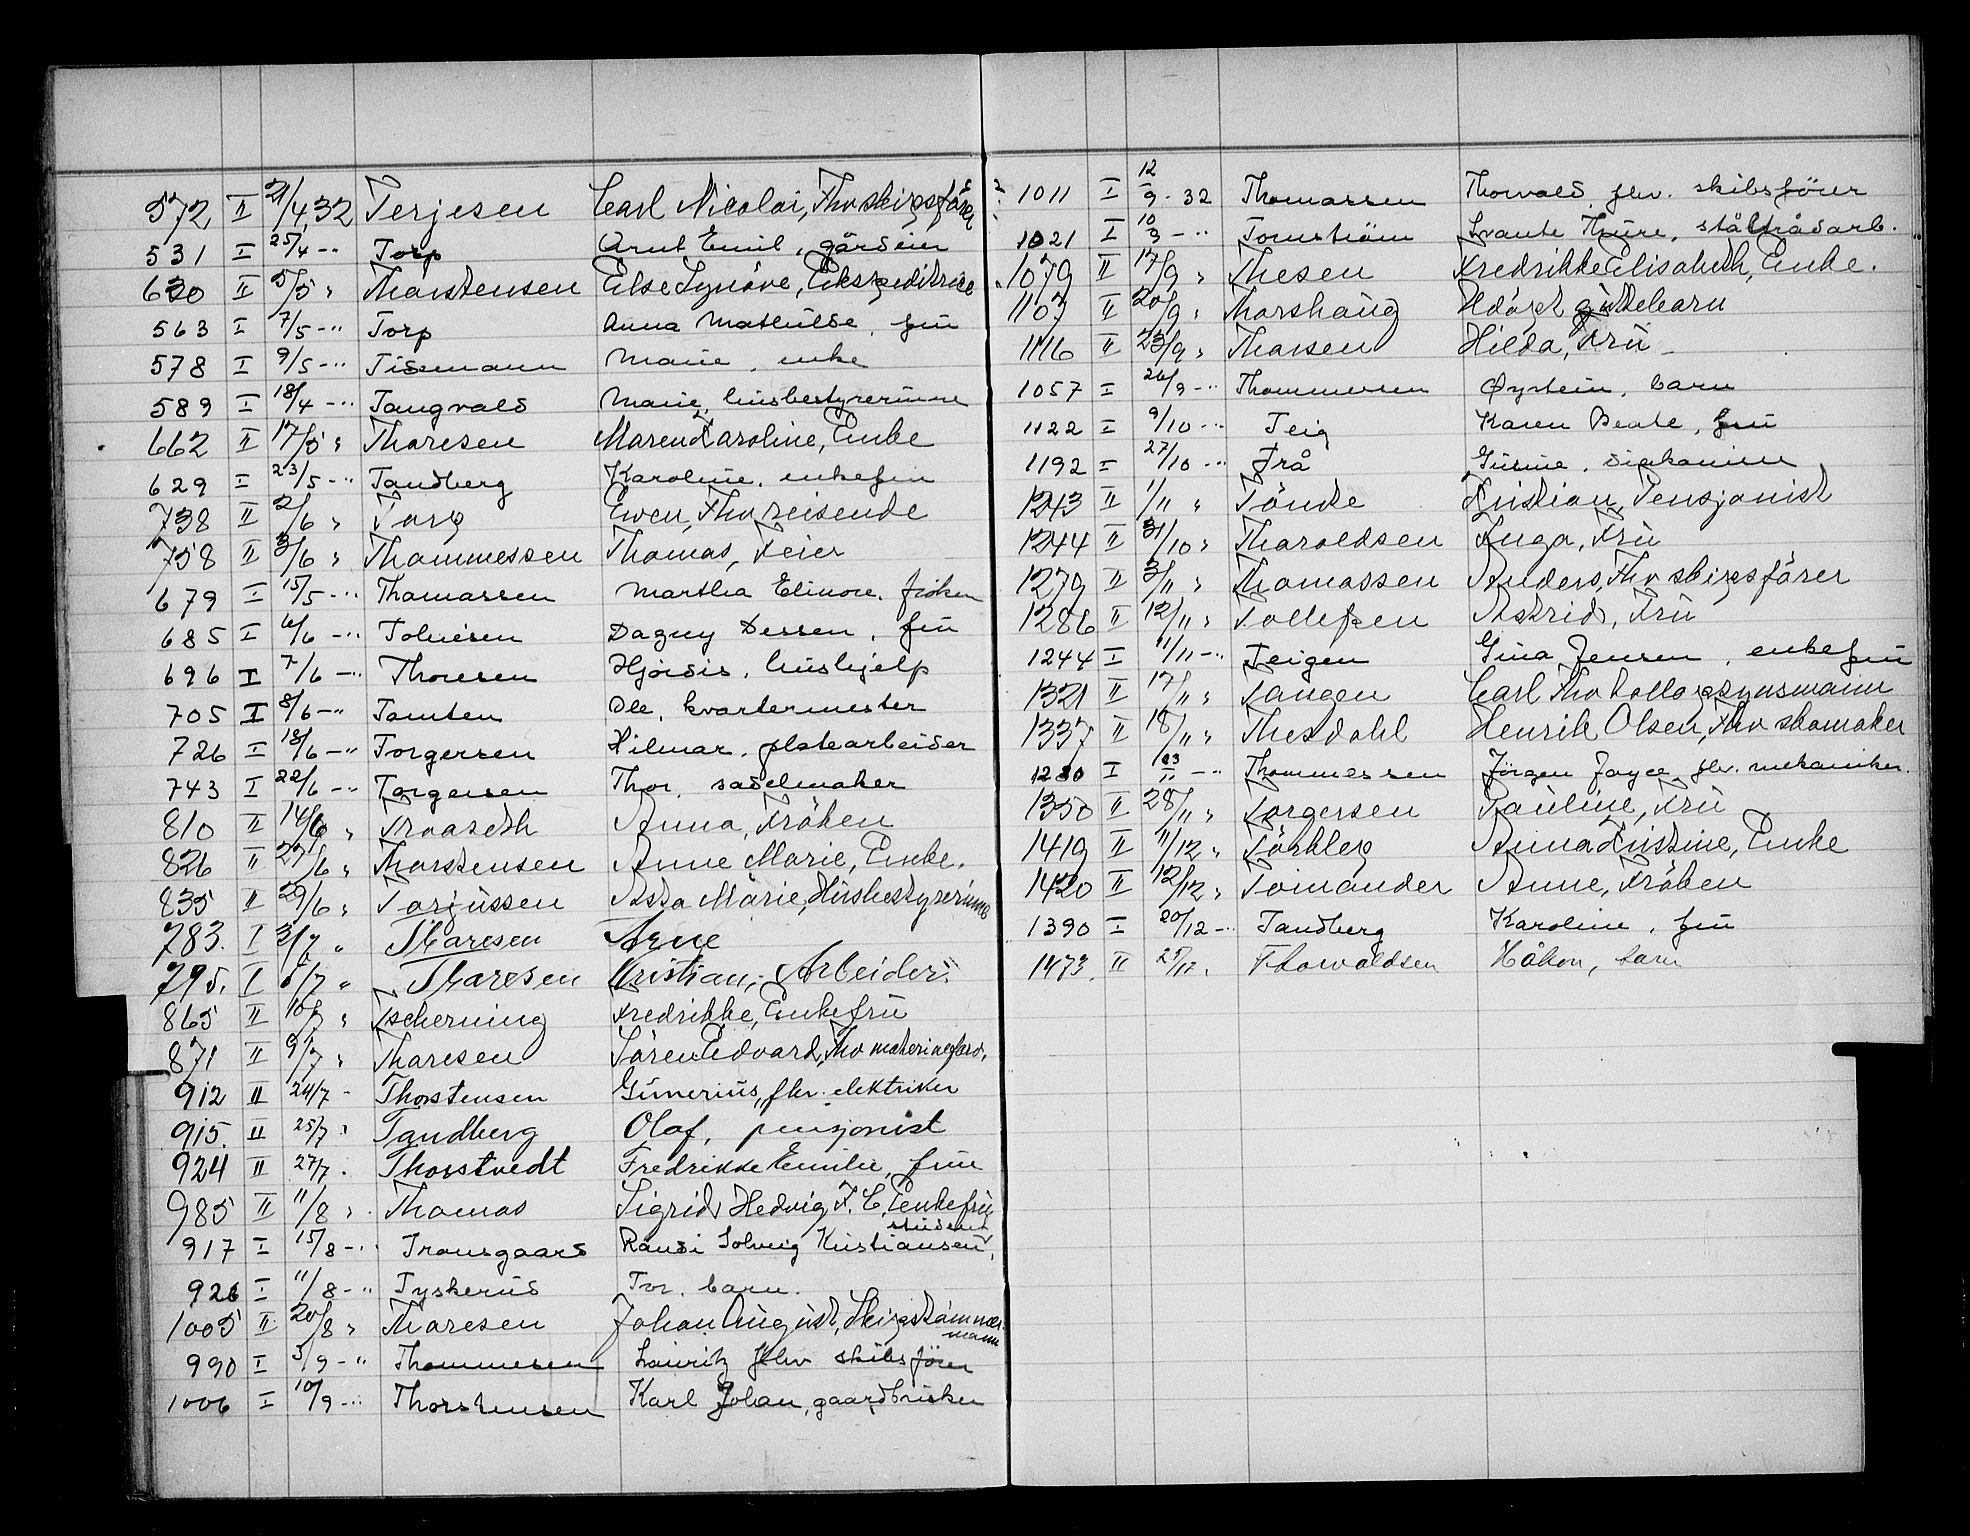 572 II 21/4 32 Terjesen Carl Nicolai, Fhv skipsfører
531 I 25/4 -" Torp Arnt Emil, gårdeier
620 II 5/5 " Thorstensen Else Synöve, Ekspeditrise
563 I 7/5 -" Torp Anna Mathilde, fru
578 I 9/5 -" Tissmann Marie, enke
589 I 18/4 -" Tangvald Marie, husbestyrerinne
662 II 17/5 " Thoresen Maren Karoline, Enke
629 I 23/5 -" Tandberg Karoline, enkefru
738 II 2/6 " Torp Ewen, Fhv reisende
758 II 3/6 " Thommessen Thomas, Feier
679 I 15/5 -" Thomassen Martha Elinore, frøken
685 I 6/6 -" Tolnesen Dagny Dessen, fru
696 I 7/6 -" Thoresen Hjørdis, hushjelp
705 I 8/6 -" Tomten Ole, kvartermester
726 I 18/6 -" Torgersen Hilmar, platearbeider
743 I 22/6 -" Torgersen Thor, sadelmaker
810 II 14/6 " Troaseth Anna, Fröken
826 II 27/6 " Thorstensen Anne Marie, Enke.
835 II 29/6 " Torjussen Assa Marie, Husbestyrerinne
783. I 3/7 " Thoresen Arne
795. I 5/7 " Thoresen Kristian, Arbeider
865 II 10/7 " Tscherning Fredrikke, Enkefru
871 II 9/7 " Thoresen Sören Edvard, Fhv materialforv.
912 II 24/7 - Thorstensen Gunerius, fhv. elektriker
915. II 25/7 " Tandberg Olaf, pensjonist
924 II 27/7 . Thorstvedt Fredrikke Emilie, frue
985 II 11/8 " Thomas Sigrid Hedvig F. C. Enkefru
917 I 15/8 -" Tronsgaard Randi Solveig Kristiansen, student
926 I 11/8 -" Tyskerud Tor, barn.
1005 II 20/8 " Thoresen Johan August, Skipstømmermann
990 I 5/9 -" Thommesen Lauritz fhv skibsfører
1006 I 10/9 -" Thorstensen Karl Johan, gaardbruker
1011 I 12/9 - 32 Thomassen Thorvald, fhv. skibsfører
1021 I 10/3 -" Tornström Svante Thure, ståltrådarb.
1079 II 17/9 " Thesen Fredrikke Elisabeth, Enke.
1107 II 20/9 " Thorshaug Udöpt guttebarn
1116 II 23/9 " Thorsen Hilda, Fru
1057 I 26/9 -" Thommessen Øystein, barn
1122 I 9/10 -" Teig Karen Beate, fru
1192 I 27/10 -" Trå Gurine, diakonisse
1243 II 1/11 " Tönde Kristian, Pensjonist
1244 II 31/10 " Tharoldsen Inga, Fru
1279 II 3/11 " Thomassen Anders, Fhv skipsförer
1286 II 12/11 " Tollefsen Astrid, Fru
1244 I 11/11 -" Teigen Gina Jensen, enkefru
1321 II 17/11 " Tangen Carl Fhv tolloppsynsmann
1337 II 18/11 " Thesdahl Henrik Olsen, Fhv skomaker
1280 I 23/11 -" Thommessen Jørgen Joyce, fhv. mekaniker.
1350 II 28/11 " Torgersen Pauline, Fru
1419 II 11/12 " Törkleg Anna Kristine, Enke
1420 II 12/12 " Toinander Anne, Fröken
1390 I 20/12 -" Tandberg Karoline, fru
1473. II 29/12. Thorvaldsen Håkon, barn